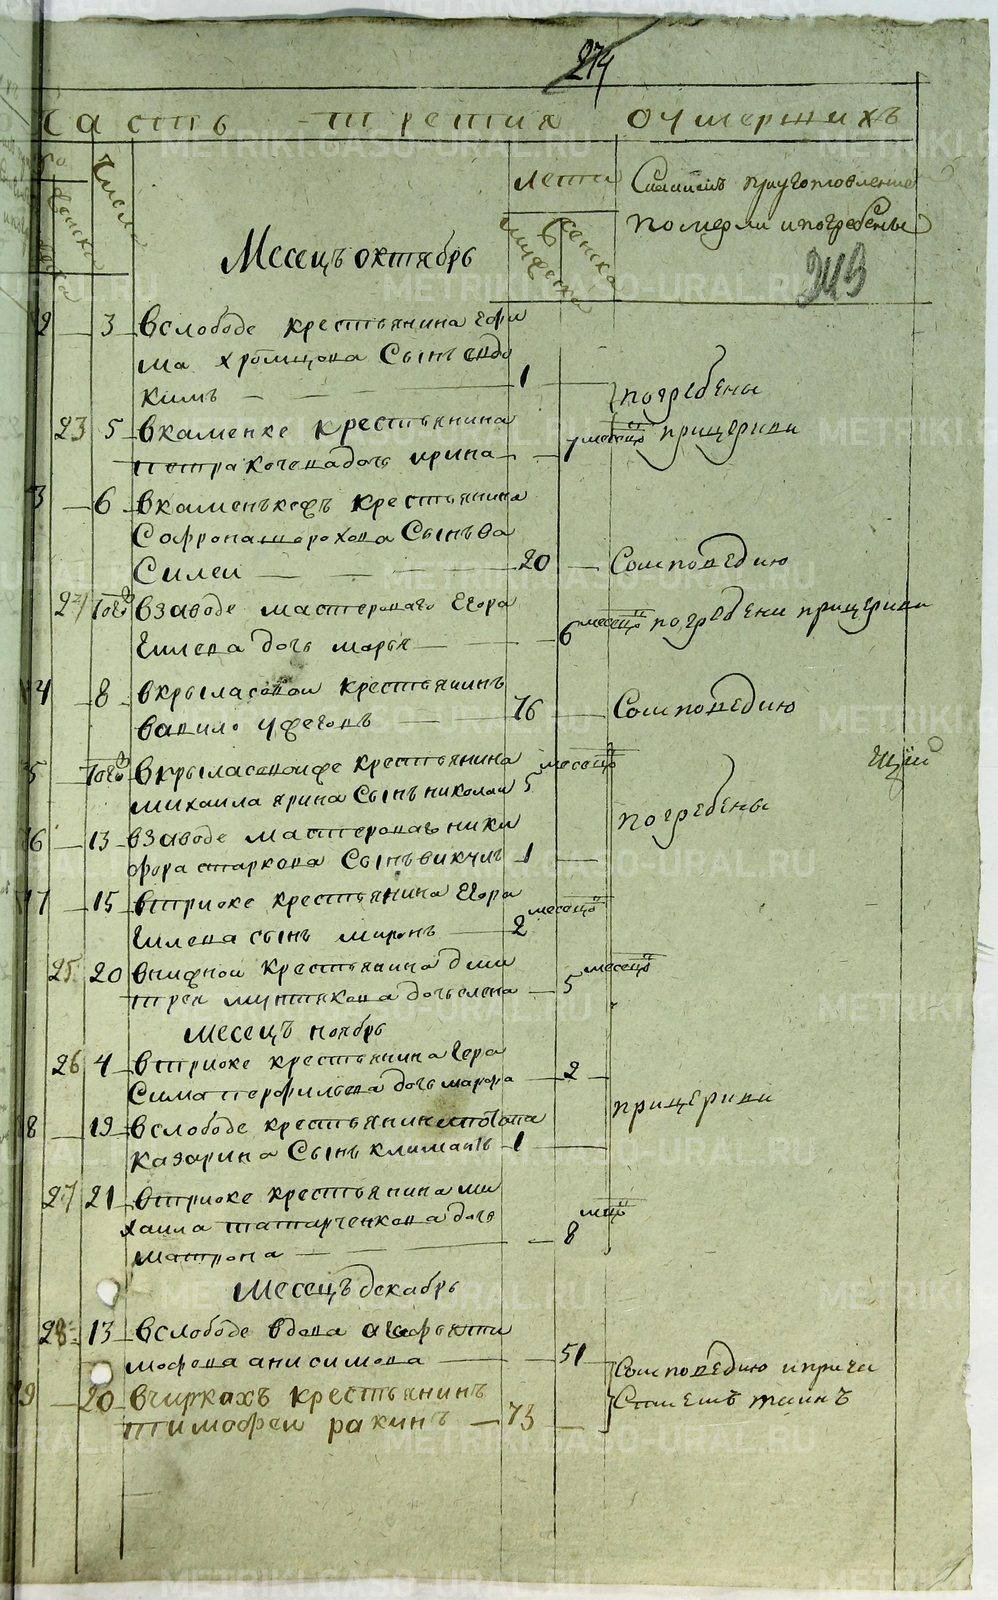 274
Часть третия о умершихъ
Числа
женска
лета
мужеска
женска
померли и погребены
243
Месецъ октябрь
2 3 в слободе крестьянина Ефи
ма Хромцова сынъ Евдо
кимъ 1
погребены
23 5 в каменке крестьянина
петра кочева дочь ирина 7 месецъ
при церкви
3 6 в каменькеж крестьянина
Софрона шорохова Сынъ Ва
Силеи 20 Соисповедию
24 Того в заводе мастероваго Егора
Гилева дочь марья 6 месецъ погребени при церкви
14 8 в крыласовои крестьянинъ
вавило уфеговъ 76 Соисповедию
5 Того в крыласовоиже крестьянина месецъ
михаила ярина Сынъ николаи 5
погребены
16 13 в заводе мастероваго ники
фора старкова Сынъ викулъ 1
17 15 в триоке крестьянина Егора
Гилева сынъ миронъ 2 месецъ
25 20 в нижнои крестьянина дми
трея мунтякова дочь елена 5 месецъ
месецъ ноябрь
26 4 в триоке крестьянина Гера
Сима перфильева дочь марфа 2
при церкви
18 19 в слободе крестьянина потапа
казарина Сынъ климантъ 1
27 21 в триоке крестьянина ми
хаила татарченкова дочь
матрона 8 мцъ
Месецъ декабрь
28 13 в слободе вдова агафья ти
мофева анисимова 51
Соисповедию и прича
Стиемъ таинъ
19 20 в чирках крестьянинъ
тимофеи ракинъ 73